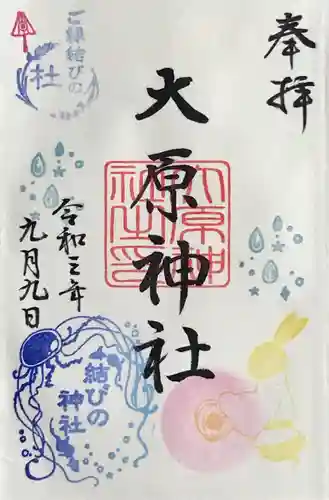 奉拝
大原神社
大原神
社之印
令和三年
九月九日
ご縁結びの
社
結びの
神社